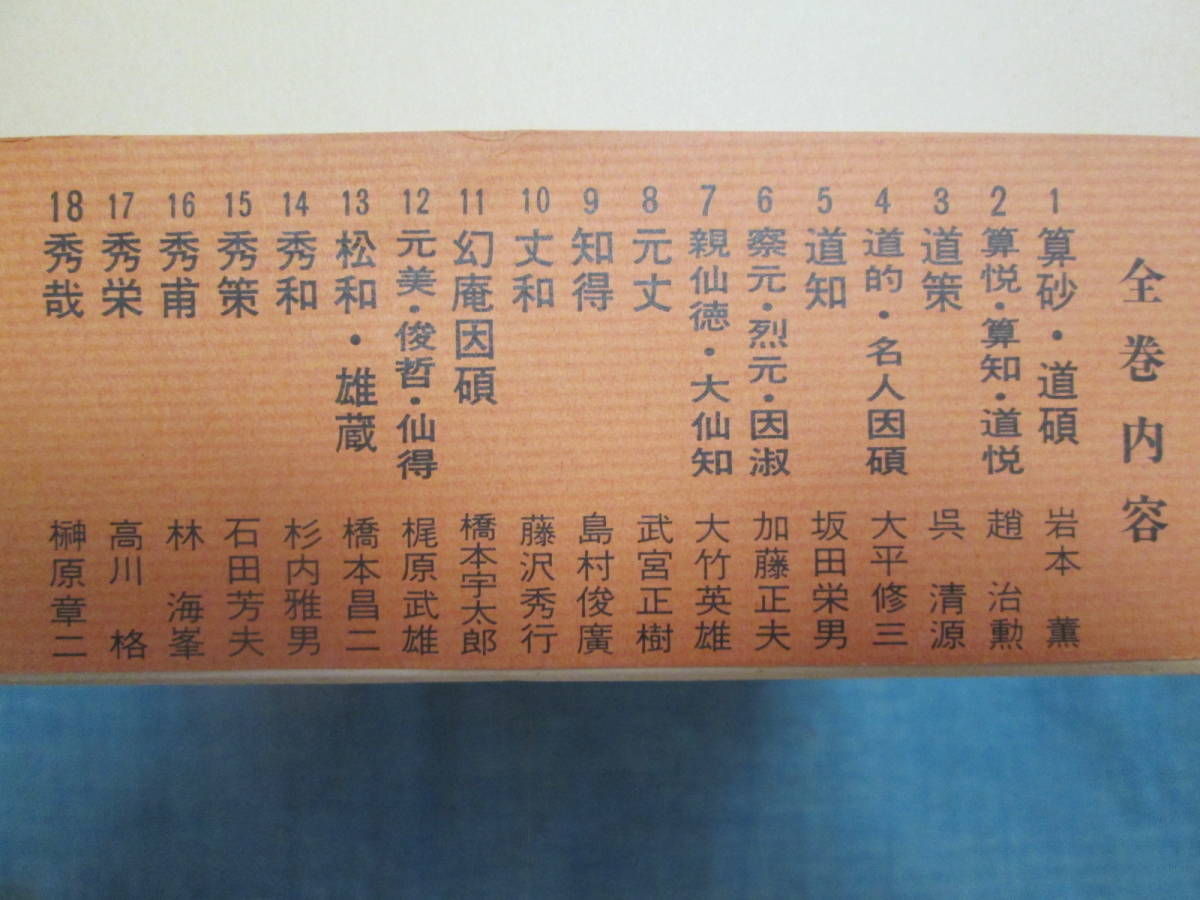 全巻内容
1 算砂・道碩 岩本 薫
2 算悦・算知・道悦 趙 治勲
3 道策 呉 清源
4 道的・名人因碩 大平修三
5 道知 坂田栄男
6 察元・烈元・因淑 加藤正夫
7 親仙徳・大仙知 大竹英雄
8 元丈 武宮正樹
9 知得 島村俊廣
10 丈和 藤沢秀行
11 幻庵因碩 橋本宇太郎
12 元美・俊哲・仙得 梶原武雄
13 松和・雄蔵 橋本昌二
14 秀和 杉内雅男
15 秀策 石田芳夫
16 秀甫 林 海峯
17 秀栄 高川 格
18 秀哉 榊原章二